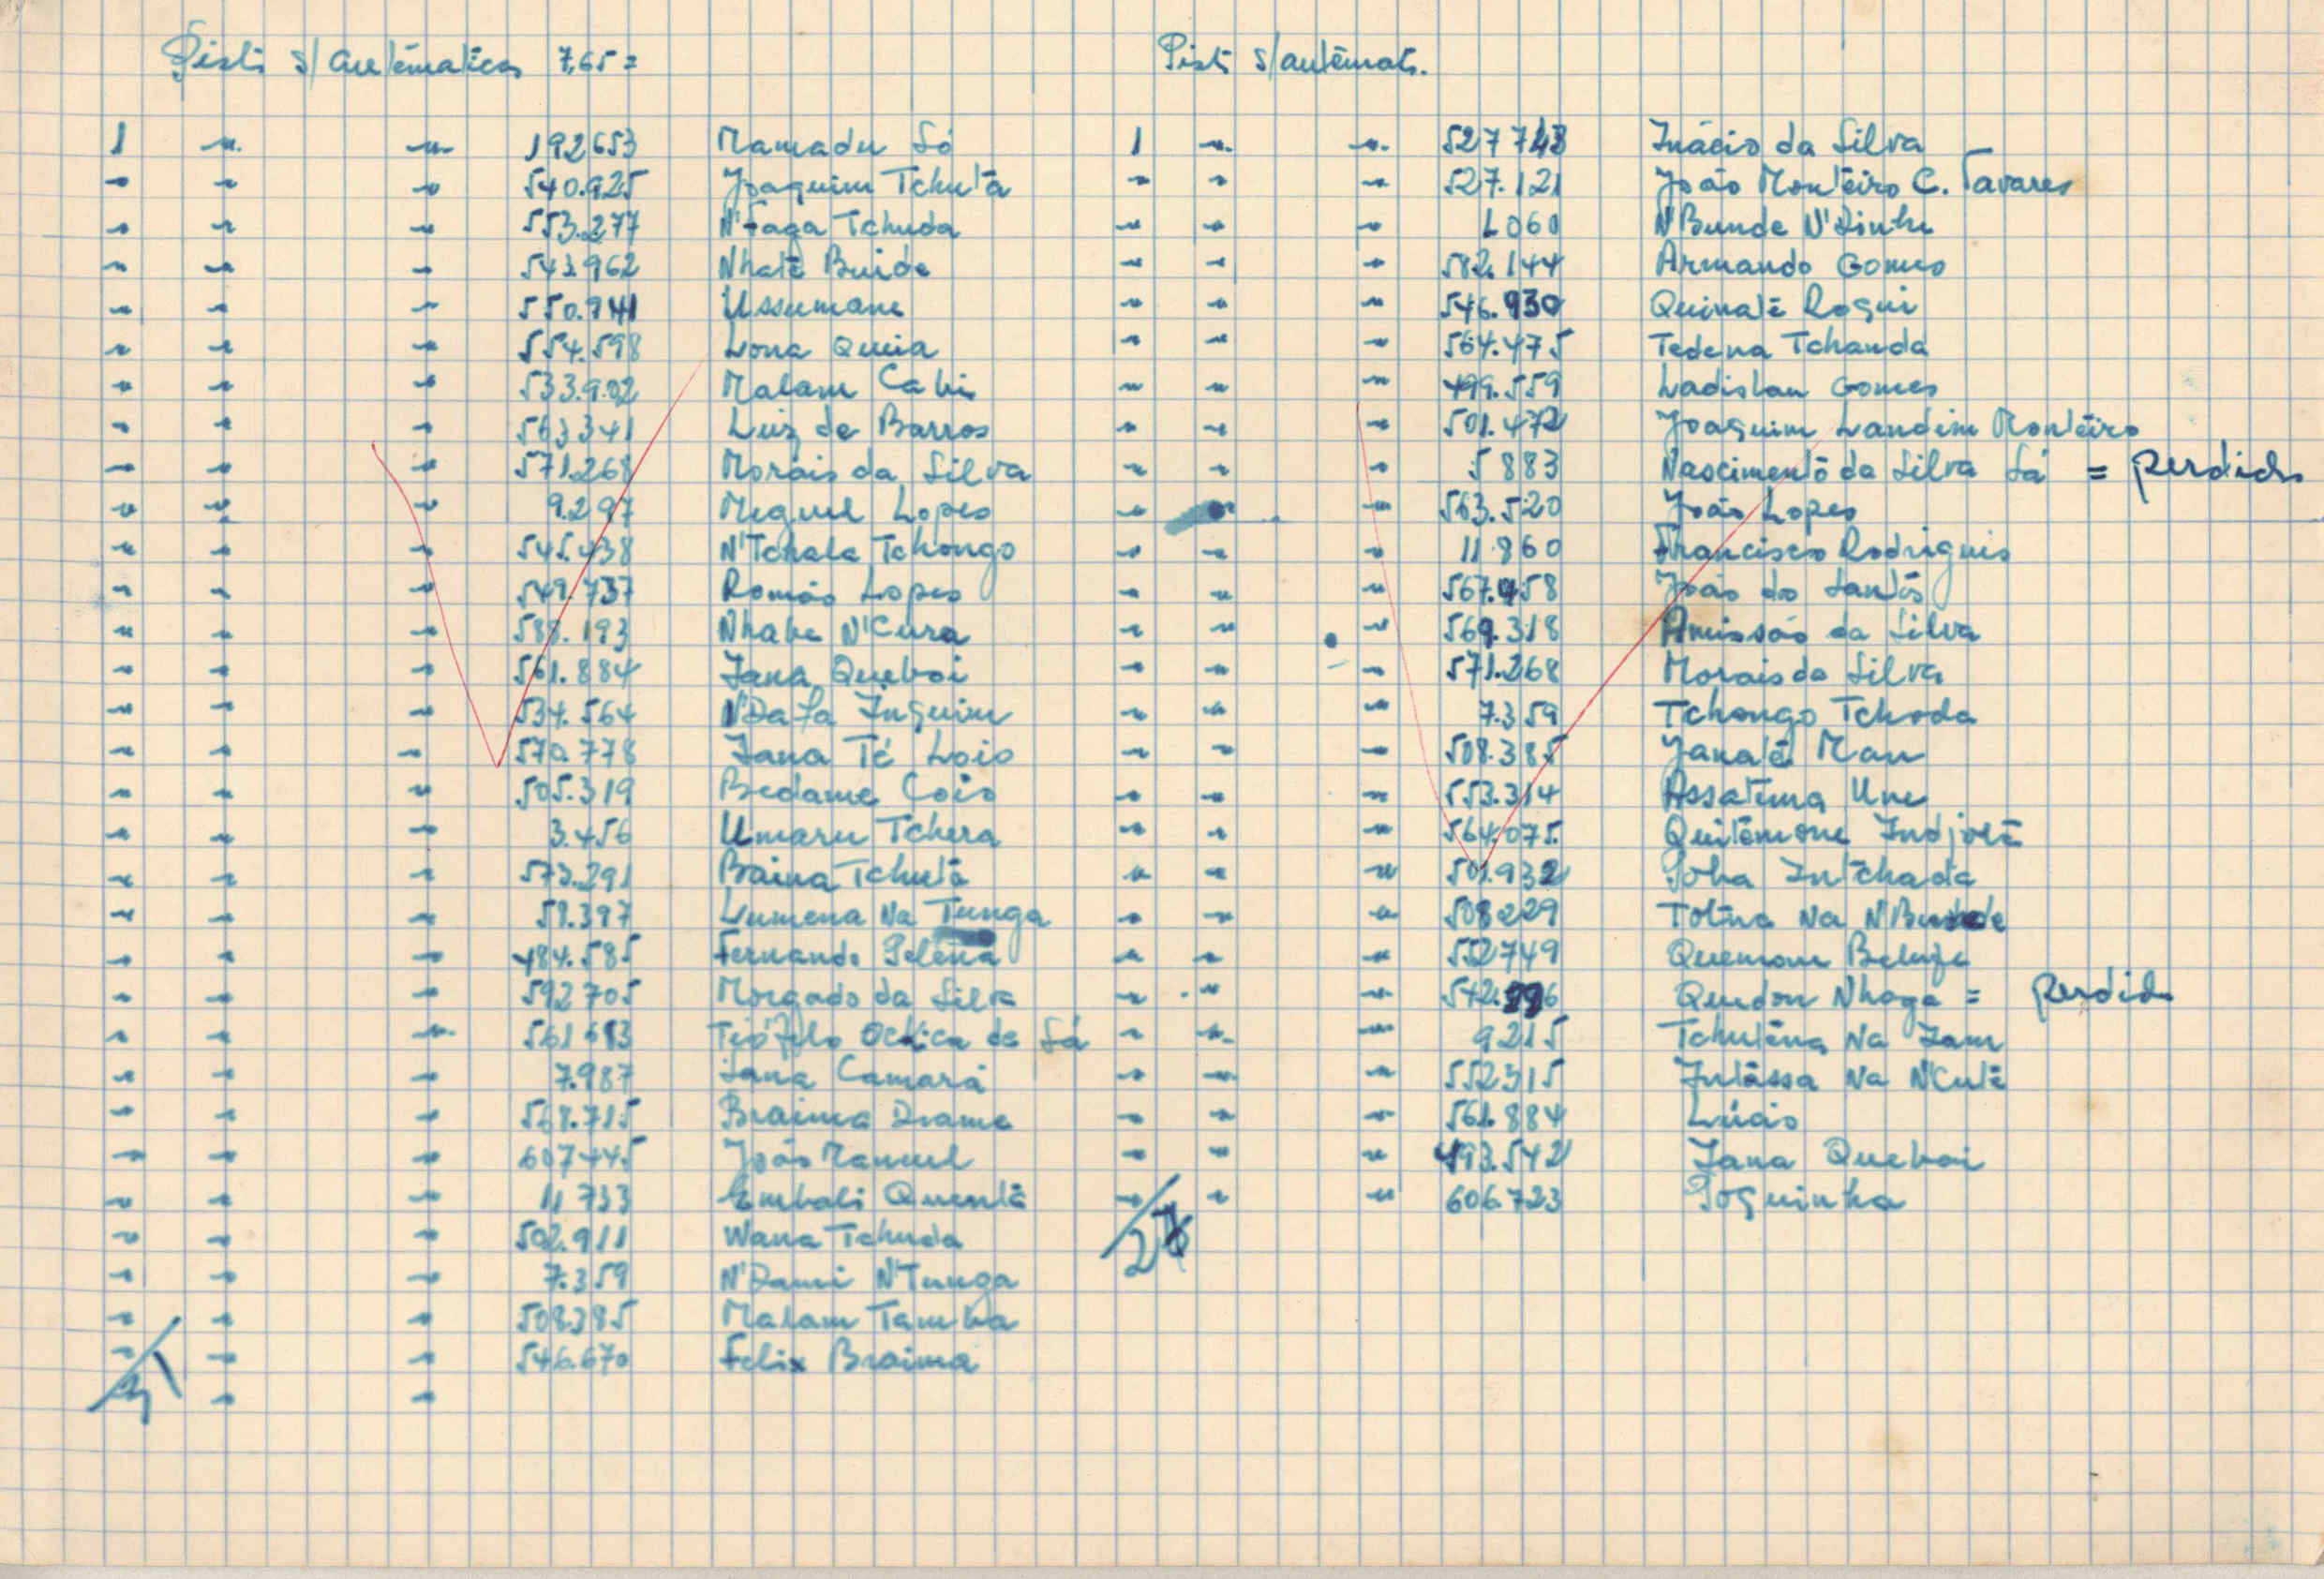 Pist. s/ automáticas 7,65 =
1 " " 192653 Mamadu Só
" " " 540.925 Joaquim Tchutá
" " " 553.277 N'Faga Tchuda
" " " 543.962 Nhaté Buide
" " " Ussumane
" " " 554.598 Lona Quuia
" " " 533.902 Malam Cabi
" " " 563341 Luiz de Barros
" " " 571.268 Morais da Silva
" " " 9.297 Miguel Lopes
" " " 545.438 N'Tchala Tchongo
" " " 549.737 Romão Lopes
" " " 193 Nhabe N'Cura
" " " 561.884 Jana Queboi
" " " 534.564 N'Dafa Inguim
" " " 570.778 Jana Té Lois
" " " 505.319 Bedame Cois
" " " 3.456 Umaru Tchera
" " " 573.291 Baina Tchutá
" " " 58.397 Lumena Na Tunga
" " " 484.585 Fernando
" " " 592705 Morgado da Silva
" " " Teófilo de Sá
" " " 7.987 Sana Camará
" " " 568.715 Braima Drame
" " " 607445 João Manuel
" " " 11733 Embali Quentá
" " " 502.911 Wana Tchuda
" " " 7.359 N'Dami N'Tunga
" " " 508385 Malam Tamba
" " " 546.670 Felix Braima
" "
Pist. s/ automát.
1 " " Inácio da Silva
" " " 527.121 João Monteiro C. Tavares
" " " L060 N'Bunde N'Dinhe
" " " 582.144 Armando Gomes
" " " 546.930 Quinaté Rogui
" " " 564.475 Tedena Tchanda
" " " 499.559 Ladislau Gomes
" " " 501.472 Joaquim Landim Monteiro
" " " 5883 Nascimento da Silva Sá = perdida
" " " 563.520 João Lopes
" " " 11860 Francisco Rodriguis
" " " 567.958 João dos Santos
" " " 569.318 da Silva
" " " 571.268 Morais da Silva
" " " 7.359 Tchongo Tchoda
" " " 508.385 Janaté Man
" " " 553.314 Assatema Une
" " " 564.075 Quitemone Indjoté
" " " 501.932 Intchada
" " " 508229 Totna Na N'Bunde
" " " 552749 Quemom
" " " Quedon Nhaga = perdida
" " " 9215 Tchuténa Na Jam
" " " 552315 Intássa Na N'Cuté
" " " 561.884 Lúcio
" " " 493.542 Jana Queboi
" " " 606.723 Poguinha